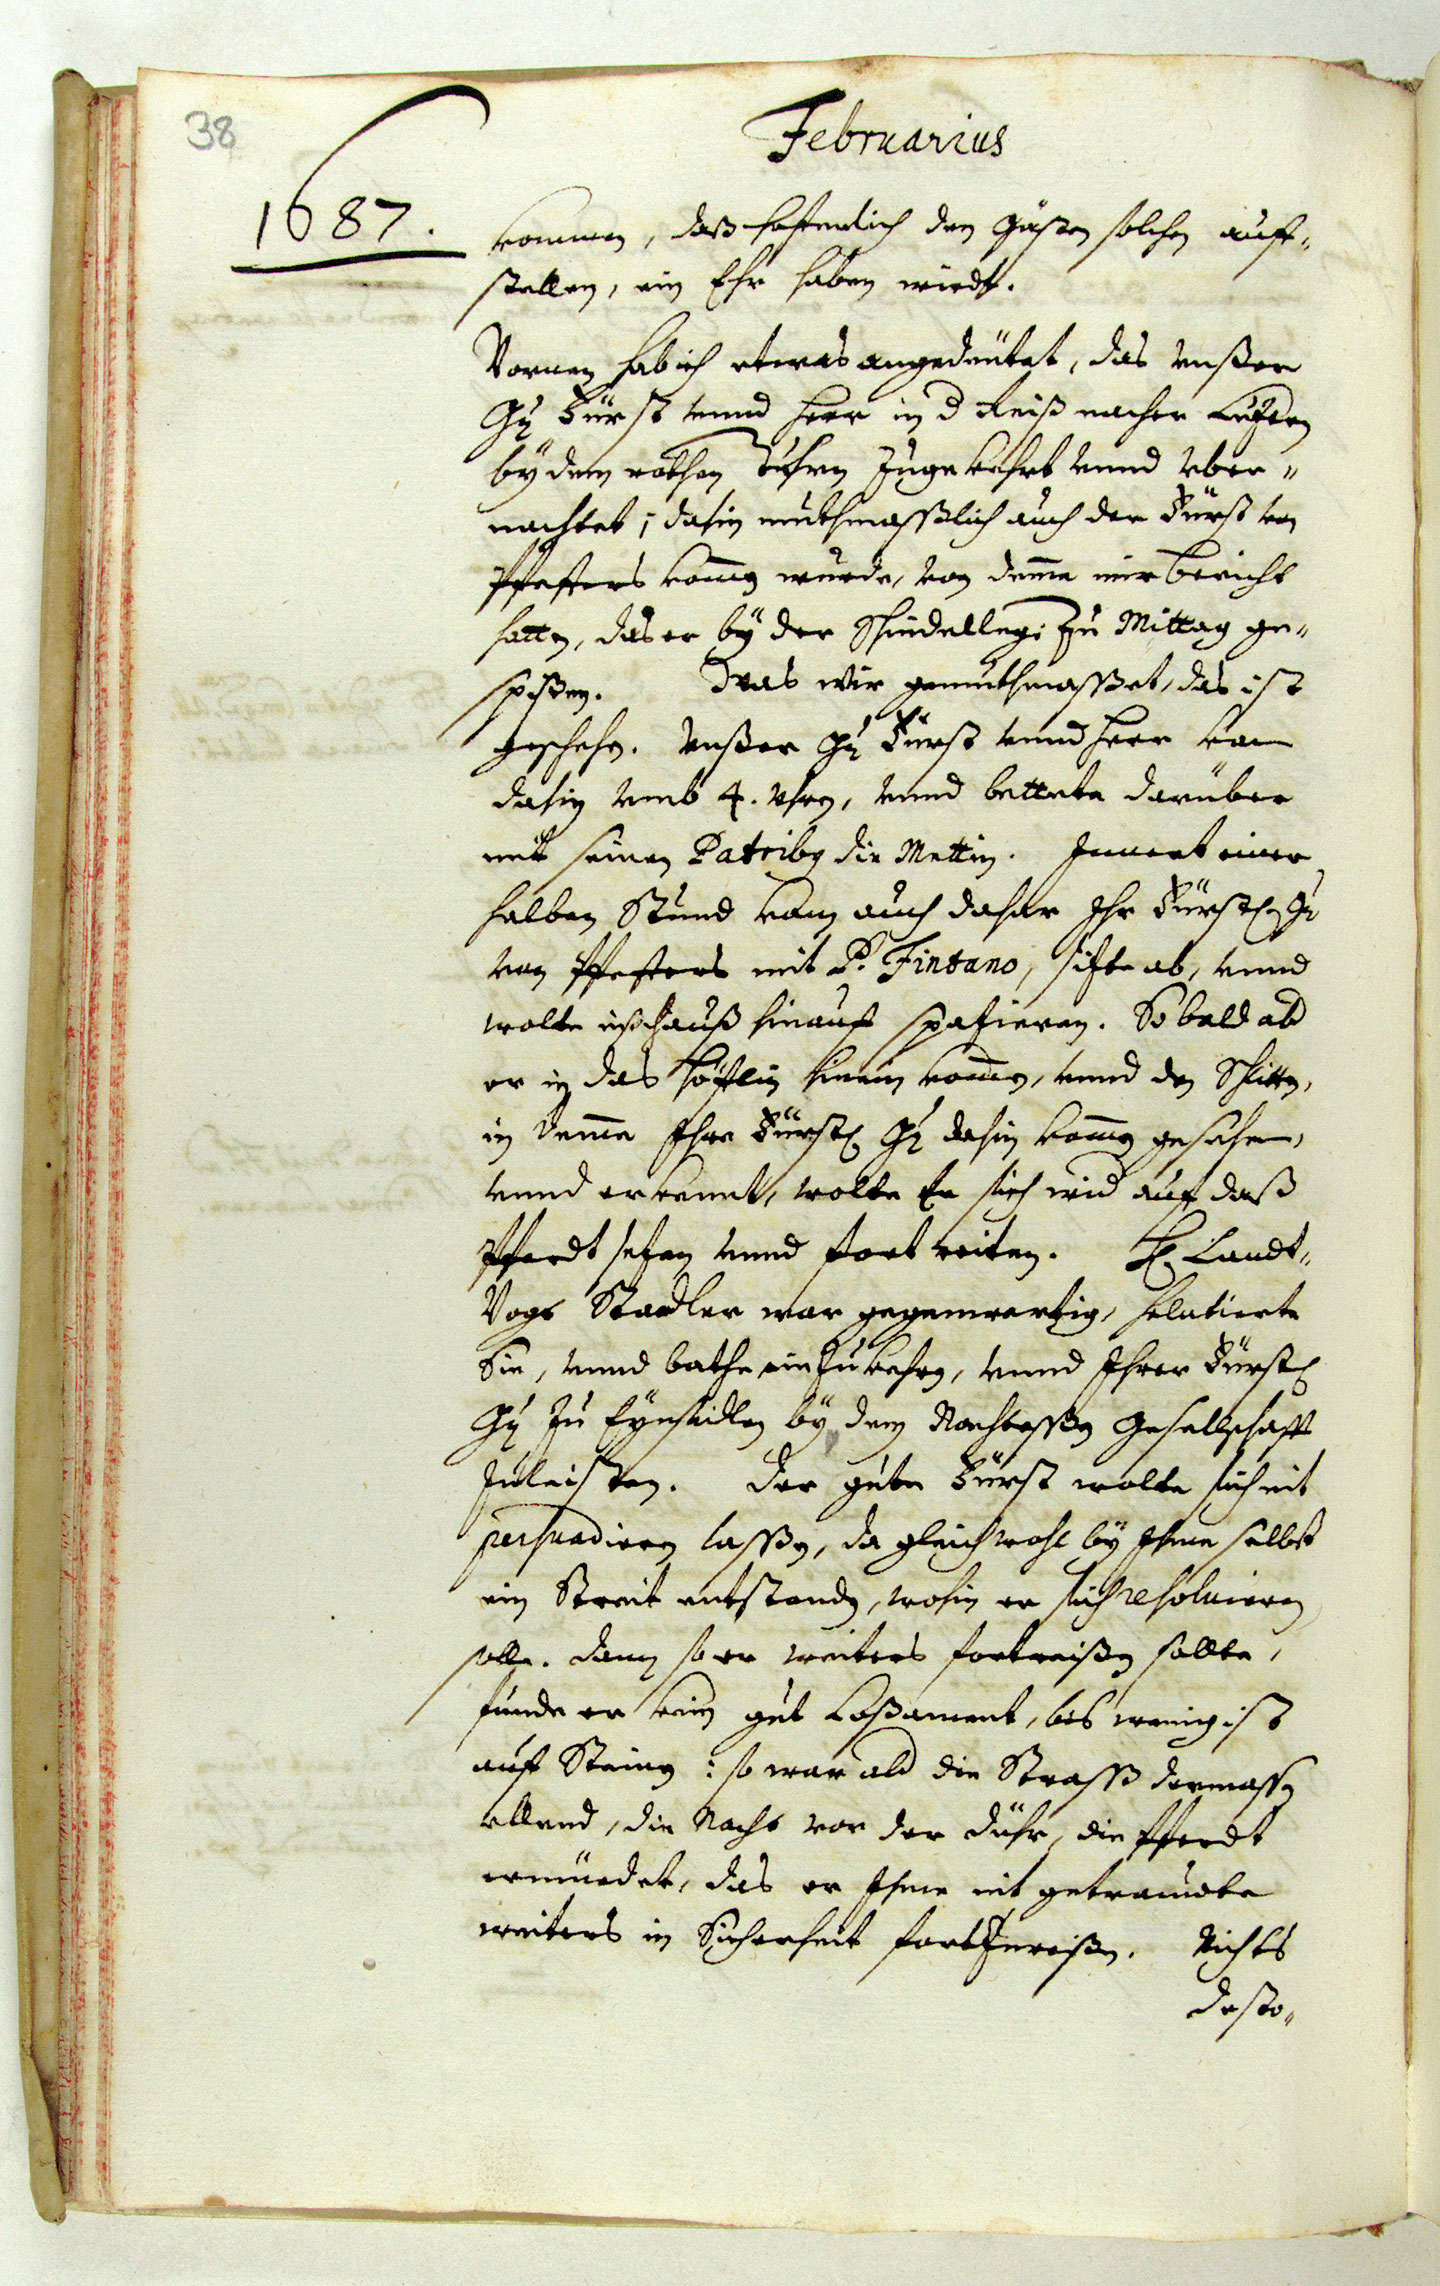 38
Februarius
1687.
kommen, daß hoffendlich den Gästen solchen auff-
stellen, ein Ehr haben wirdt.
Vornen hab ich etwas angedeütet, das vnßer
Gn Fürst vnnd Herr in d Reiß nacher Lutzern
bÿ dem rothen Thurn Zugekehrt vnnd vber-
nachtet; dahin muthmasslich auch der Fürst von
Pfeffers komen wurde, von deme wir bericht
hatten, das er bÿ der Schindellegi zu Mittag ge-
spißen. Was wir gemuthmasset, das ist
geschehen. Vnßer Gn Fürst vnnd Herr kam
dahin vmb 4. Vhren, vnnd bettete darüber
mit seinen Patribus die Mettin. Innert einer
halben Stund kam auch dahar Ihr Fürstl. Gn
von Pfeffers mit P. Fintano, sitzte ab, vnnd
wolte ins hauß hinauff spatzieren. So bald als
er in das höfflin hinein komen, vnnd den Schlitten,
in deme Ihre Fürstl. Gn dahin komen gesehen,
vnnd erkennt, wolte Er sich wid auf daß
Pferdt setzen vnnd fort reiten. H. Landt-
Vogt Stadler war gegenwertig, salutierte
Sie, vnnd bathe einzukehren, vnnd Ihrer Fürstl.
Gn zu Eÿnsidlen bÿ dem Nachtessen Gesellschafft
zuleisten. Der gute Fürst wolte sich nit
persuadieren lassen, da gleichwohl bÿ Ihme selbst
ein Streit entstanden, wohin er sich resoluieren
solle. dann so er weiters fortreißen sollte,
funde er kein gut Losament, bis wenigist
auff Steinen: so war als die Strass dermassen
ellend, die Nacht vor der Dühr, die Pferdt
ermüedet, das er Ihme nit getrauwte
weiters in Sicherheit fortzureißen. Nichts
desto-